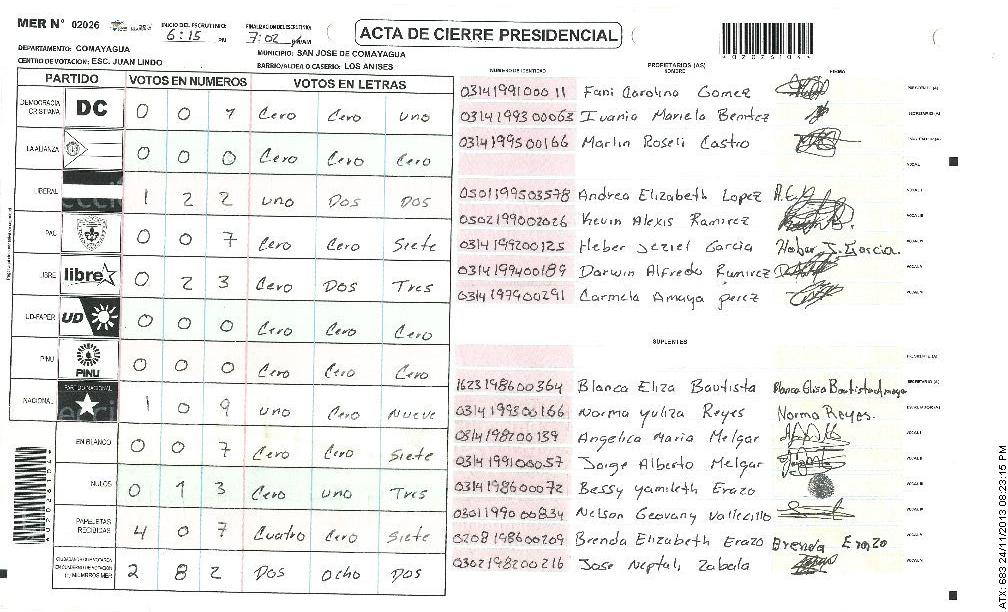 MER N° 02026
INICIO DEL ESCRUTINIO: 6:15 PM
FINALIZACION DEL ESCRUTINIO: 7:02
ACTA DE CIERRE PRESIDENCIAL
DEPARTAMENTO: COMAYAGUA
MUNICIPIO: SAN JOSE DE COMAYAGUA
CENTRO DE VOTACION: ESC. JUAN LINDO
BARRIO/ALDEA O CASERIO: LOS ANISES
PARTIDO VOTOS EN NUMEROS VOTOS EN LETRAS
DEMOCRACIA CRISTIANA DC 0 0 1 Cero Cero uno
LA ALIANZA 0 0 0 Cero Cero Cero
LIBERAL 1 2 2 uno Dos Dos
PAC 0 0 7 Cero Cero Siete
LIBRE libre 0 2 3 Cero Dos Tres
UD-FAPER UD 0 0 0 Cero Cero Cero
PINU PINU 0 0 0 Cero Cero Cero
NACIONAL PARTIDO NACIONAL 1 0 9 uno Cero Nueve
EN BLANCO 0 0 7 Cero Cero Siete
NULOS 0 1 3 Cero uno Tres
PAPELETAS RECIBIDAS 4 0 7 Cuatro Cero Siete
2 8 2 Dos ocho Dos
NUMERO DE IDENTIDAD PROPIETARIOS (AS) NOMBRE FIRMA
0314199100011 Fani Carolina Gomez
0314199300063 Ivania Mariela Benitez
0314199500166 Marlin Roseli Castro
0501199503578 Andrea Elizabeth Lopez
0502199002026 Kevin Alexis Ramirez
0314199200125 Heber Jeziel Garcia Heber J. Garcia.
0314199400189 Darwin Alfredo Ramirez
0314197900291 Carmela Amaya perez
SUPLENTES
1623198600364 Blanca Eliza Bautista
0314199300166 Norma yuliza Reyes Norma Reyes.
0314198200139 Angelica Maria Melgar
0314199100057 Jorge Alberto Melgar
0314198600072 Bessy yamileth Erazo
0301199000834 Nelson Geovany Vallecillo
0208198600209 Brenda Elizabeth Erazo Brenda Erazo
0302198200216 Jose Neptali Zabala
ATX: 683 24/11/2013 08:23:15 PM